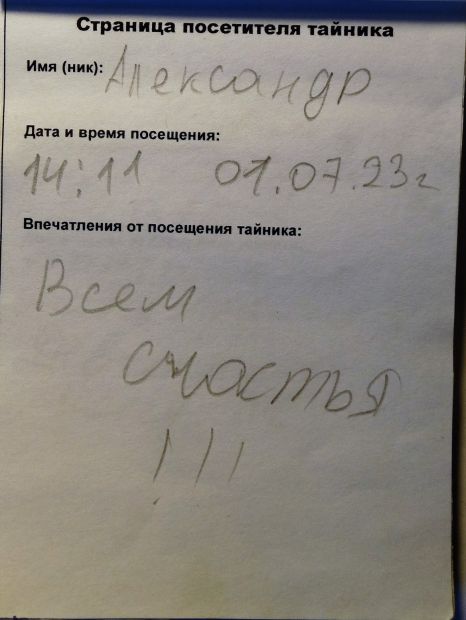 Страница посетителя тайника
Имя (ник): Александр
Дата и время посещения:
14:11 01.07.23г
Впечатления от посещения тайника:
Всем
счастья
!!!